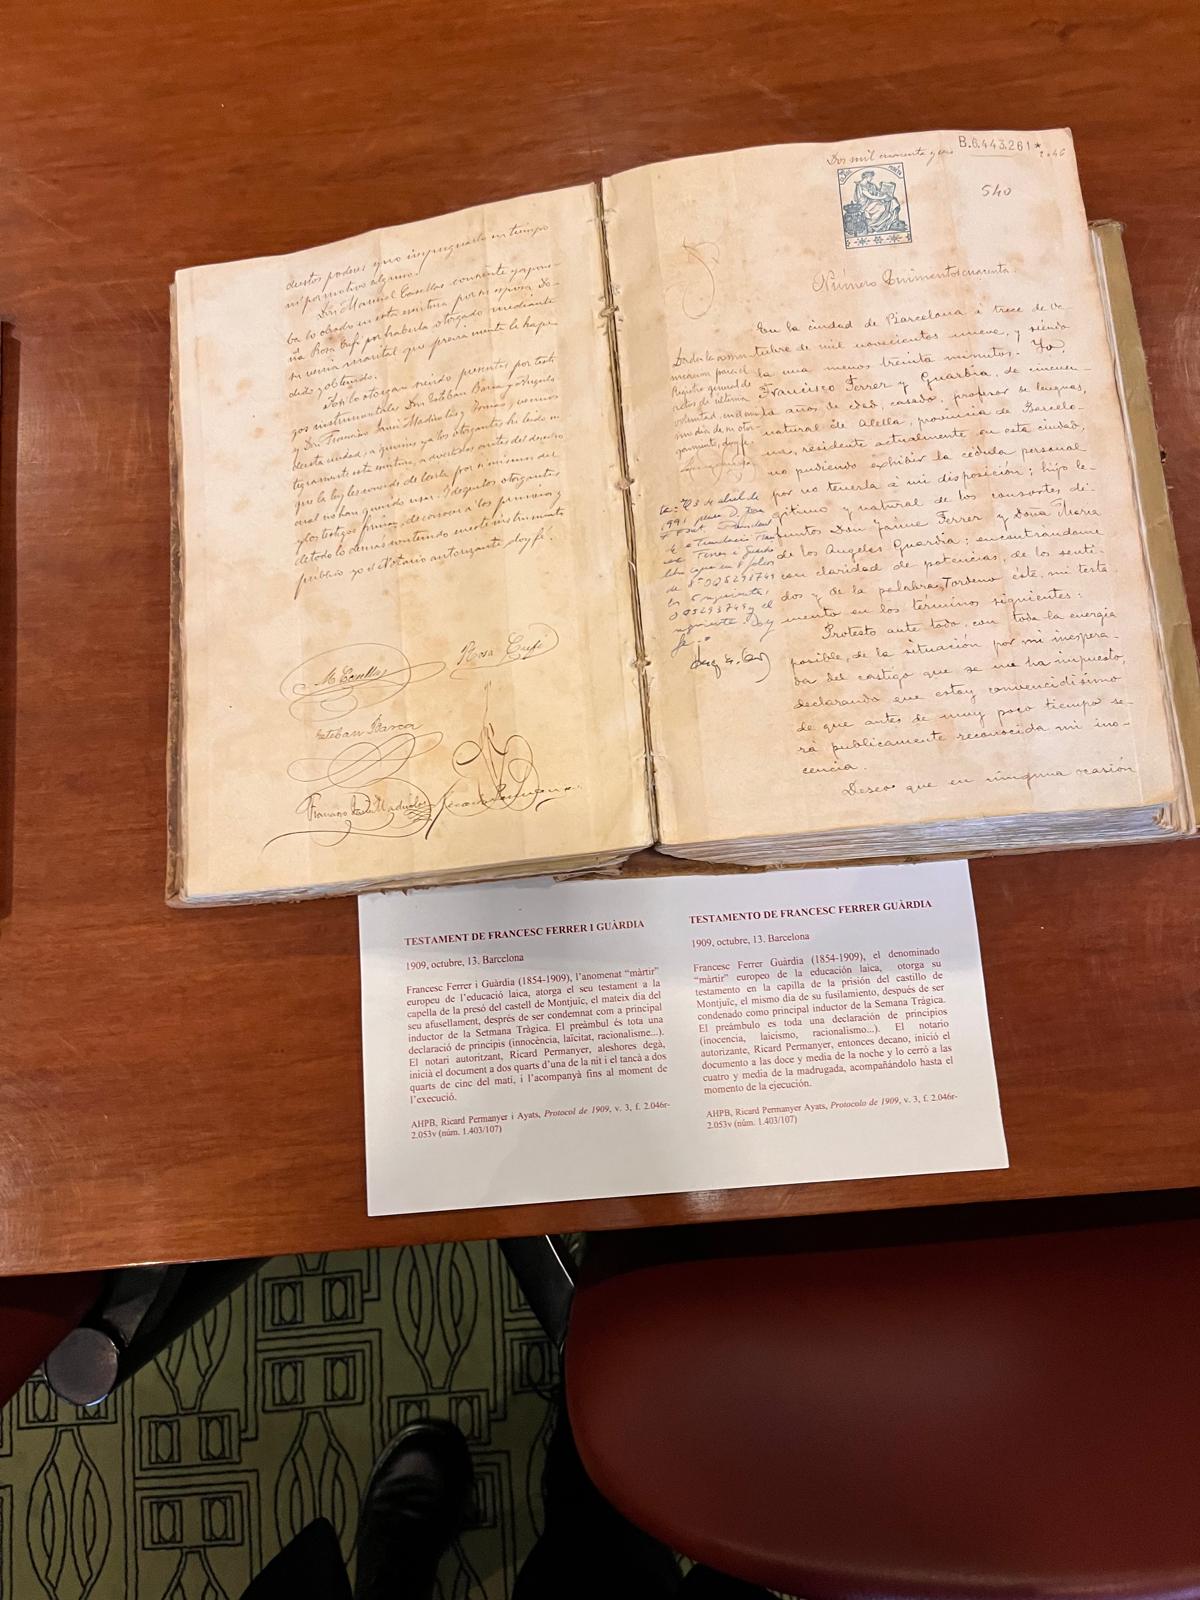 destos poderes y no impugnarlo en tiempo
ni por motivo alguno.
Don Manuel Casellas consiente y aprue-
ba lo obrado en esta escritura por su esposa Do-
ña Rosa Cufí por haberla otorgado mediante
su venia marital que previamente le ha pe-
dido y obtenido.
Así lo otorgan siendo presentes por testi-
gos instrumentales Don Esteban Barca y
y Don Francisco Madriolas y vecinos
de esta ciudad, a quienes y a los otorgantes he leido in-
tegramente esta escritura, advertidos antes del derecho
que la ley les concede de leerla por si mismos del
cual no han querido usar. Y de
y los testigos firman, de conocer a los primeros y
de todo lo demás contenido en este instrumento
público yo el Notario autorizante doy fe.
M Casellas
Rosa Cufí
Esteban Barca
Dos mil cuarenta y seis
B.6.443.261★
2.046
540
Número Quinientos cuarenta.
En la ciudad de Barcelona a trece de Oc-
tubre de mil novecientos nueve, y siendo
la una menos treinta minutos. Yo,
Francisco Ferrer y Guardia, de cincuen-
ta años de edad, casado, profesor de lenguas,
natural de Alella, provincia de Barcelo-
na, residente actualmente en esta ciudad,
no pudiendo exhibir la cédula personal
por no tenerla a mi disposición; hijo le-
gítimo y natural de los consortes di-
funtos Don Jaime Ferrer y Doña Maria
de los Angeles Guardia; encontrándome
con claridad de potencias, de los senti-
dos y de la palabra, ordeno éste, mi testa-
mento en los términos siguientes:
Protesto ante todo, con toda la energía
posible, de la situación por mi inespera-
da del castigo que se me ha impuesto,
declarando que estoy convencidísimo
de que antes de muy poco tiempo se-
rá publicamente reconocida mi ino-
cencia.
Deseo que en ninguna ocasión
Registro general de
actos de última
voluntad, en el mis-
mo dia de su otor-
gamiento, doy fe.
23 de abril de
1991
TESTAMENT DE FRANCESC FERRER I GUÀRDIA
1909, octubre, 13. Barcelona
Francesc Ferrer i Guàrdia (1854-1909), l’anomenat “màrtir”
europeu de l’educació laica, atorga el seu testament a la
capella de la presó del castell de Montjuïc, el mateix dia del
seu afusellament, després de ser condemnat com a principal
inductor de la Setmana Tràgica. El preàmbul és tota una
declaració de principis (innocència, laïcitat, racionalisme...).
El notari autoritzant, Ricard Permanyer, aleshores degà,
inicià el document a dos quarts d’una de la nit i el tancà a dos
quarts de cinc del matí, i l’acompanyà fins al moment de
l’execució.
AHPB, Ricard Permanyer i Ayats, Protocol de 1909, v. 3, f. 2.046r-
2.053v (núm. 1.403/107)
TESTAMENTO DE FRANCESC FERRER GUÀRDIA
1909, octubre, 13. Barcelona
Francesc Ferrer Guàrdia (1854-1909), el denominado
“màrtir” europeo de la educación laica, otorga su
testamento en la capilla de la prisión del castillo de
Montjuïc, el mismo día de su fusilamiento, después de ser
condenado como principal inductor de la Semana Trágica.
El preámbulo es toda una declaración de principios
(inocencia, laicismo, racionalismo...). El notario
autorizante, Ricard Permanyer, entonces decano, inició el
documento a las doce y media de la noche y lo cerró a las
cuatro y media de la madrugada, acompañándolo hasta el
momento de la ejecución.
AHPB, Ricard Permanyer Ayats, Protocolo de 1909, v. 3, f. 2.046r-
2.053v (núm. 1.403/107)